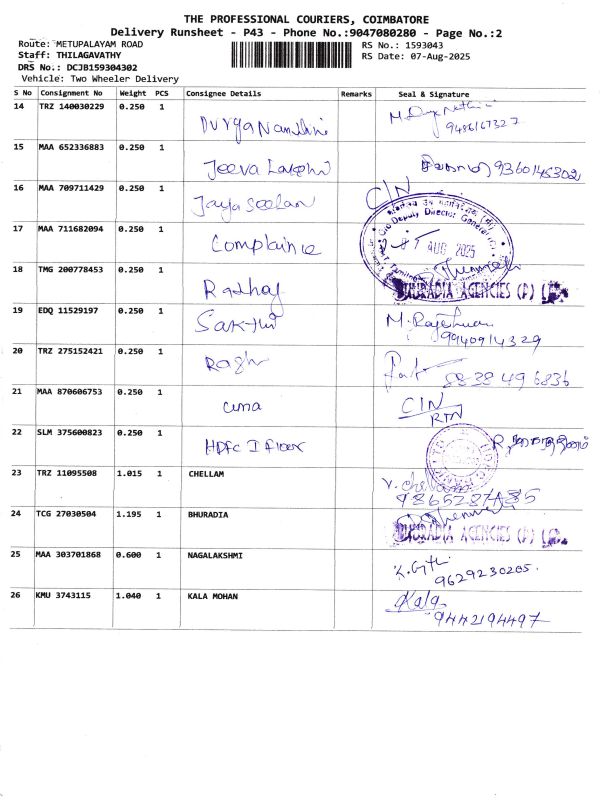 THE PROFESSIONAL COURIERS, COIMBATORE
Delivery Runsheet - P43 - Phone No.:9047080280 - Page No.:2
Route: METUPALAYAM ROAD
RS No.: 1593043
Staff: THILAGAVATHY
RS Date: 07-Aug-2025
DRS No.: DCJB159304302
Vehicle: Two Wheeler Delivery
S No Consignment No Weight PCS Consignee Details Remarks Seal & Signature
14 TRZ 140030229 0.250 1
15 MAA 652336883 0.250 1 Jeeva
16 MAA 709711429 0.250 1 Jaya Seelan CIN
17 MAA 711682094 0.250 1
Deputy Director General
AUG 2025
18 TMG 200778453 0.250 1 Radhaj
BHURADIA AGENCIES (P)
19 EDQ 11529197 0.250 1 Sakthi
20 TRZ 275152421 0.250 1
21 MAA 870606753 0.250 1 uma CIN
RTN
22 SLM 375600823 0.250 1 HDFC I floor
23 TRZ 11095508 1.015 1 CHELLAM
24 TCG 27030504 1.195 1 BHURADIA
BHURADIA AGENCIES (P)
25 MAA 303701868 0.600 1 NAGALAKSHMI
9629230205.
26 KMU 3743115 1.040 1 KALA MOHAN Kala
9442194497